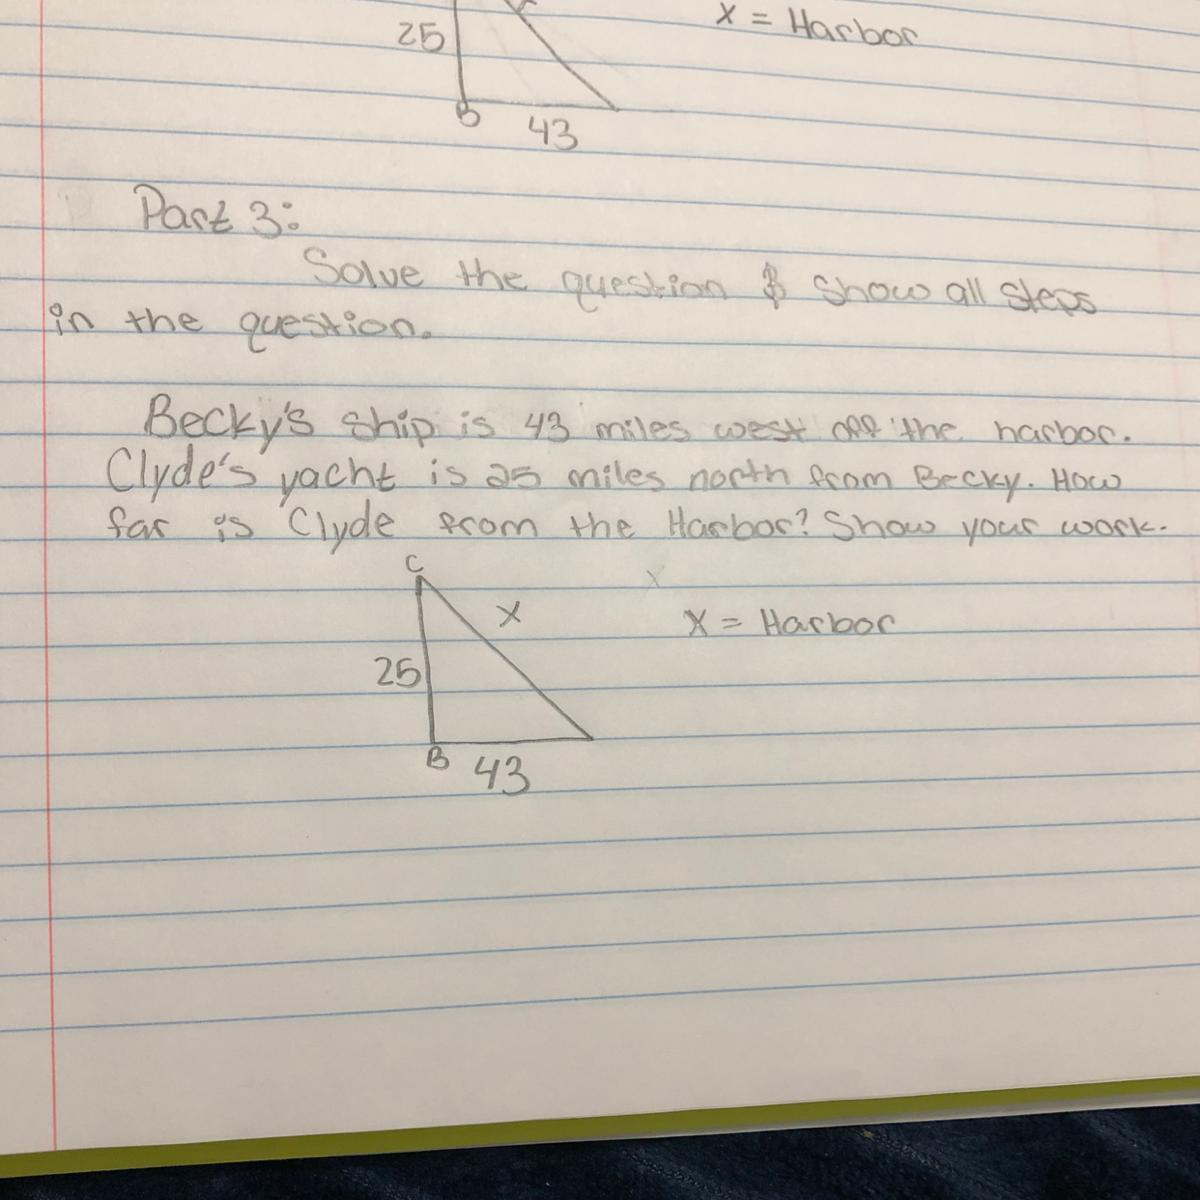 25
x = Harbor
B
43
Part 3:
Solve the question & show all steps
in the question.
Becky's ship is 43 miles west off the harbor.
Clyde's yacht is 25 miles north from Becky. How
far is Clyde from the Harbor? Show your work.
C
x
x
x = Harbor
25
B
43